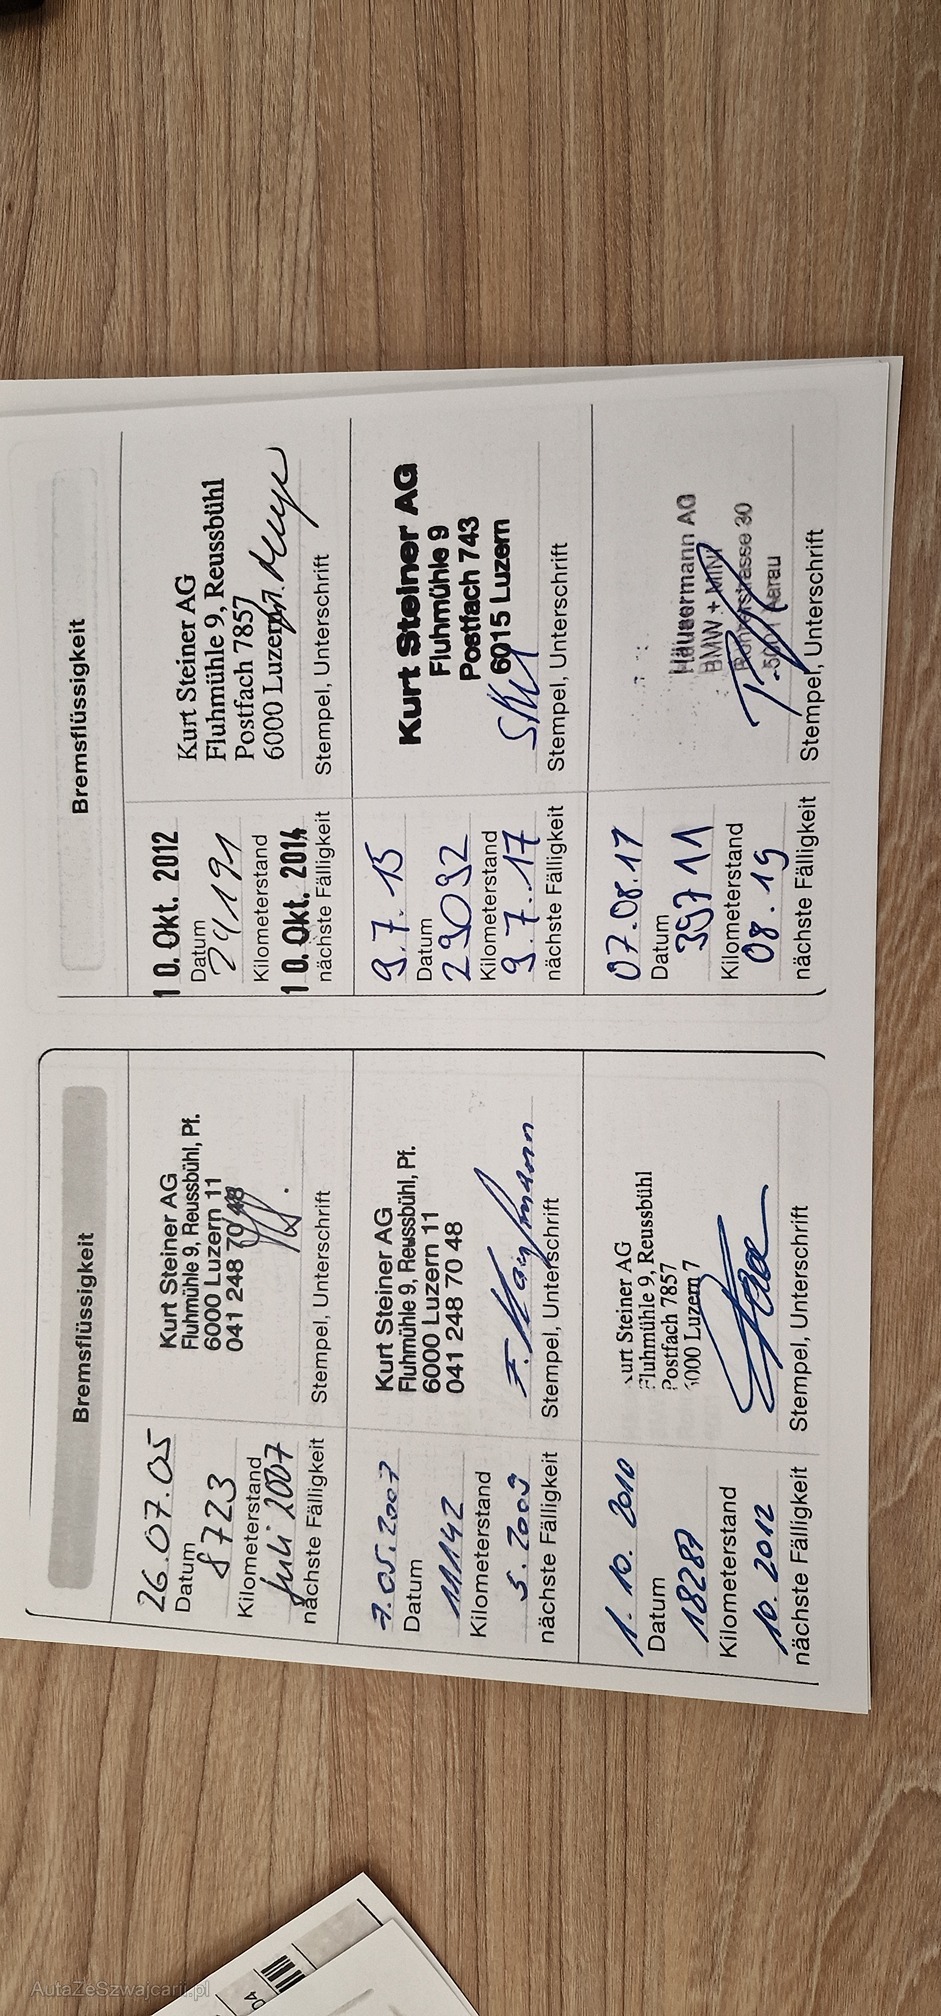 Bremsflüssigkeit
26.07.05
Datum
8723
Kilometerstand
Juli 2007
nächste Fälligkeit
Kurt Steiner AG
Fluhmühle 9, Reussbühl, Pf.
6000 Luzern 11
041 248 70 48
Stempel, Unterschrift
7.05.2007
Datum
11142
Kilometerstand
5. 2009
nächste Fälligkeit
Kurt Steiner AG
Fluhmühle 9, Reussbühl, Pf.
6000 Luzern 11
041 248 70 48
F. Kaufmann
Stempel, Unterschrift
1. 10. 2010
Datum
18287
Kilometerstand
10. 2012
nächste Fälligkeit
urt Steiner AG
Fluhmühle 9, Reussbühl
Postfach 7857
6000 Luzern 7
Stempel, Unterschrift
Bremsflüssigkeit
10. Okt. 2012
Datum
24191
Kilometerstand
10. Okt. 2014
nächste Fälligkeit
Kurt Steiner AG
Fluhmühle 9, Reussbühl
Postfach 7857
6000 Luzern
Stempel, Unterschrift
9.7.15
Datum
29092
Kilometerstand
9.7.17
nächste Fälligkeit
Kurt Steiner AG
Fluhmühle 9
Postfach 743
6015 Luzern
Stempel, Unterschrift
07.08.17
Datum
39711
Kilometerstand
08.19
nächste Fälligkeit
Häusermann AG
BMW + MINI
Rohrerstrasse 30
-5001 Aarau
Stempel, Unterschrift
AutaZeSzwajcarii.pl